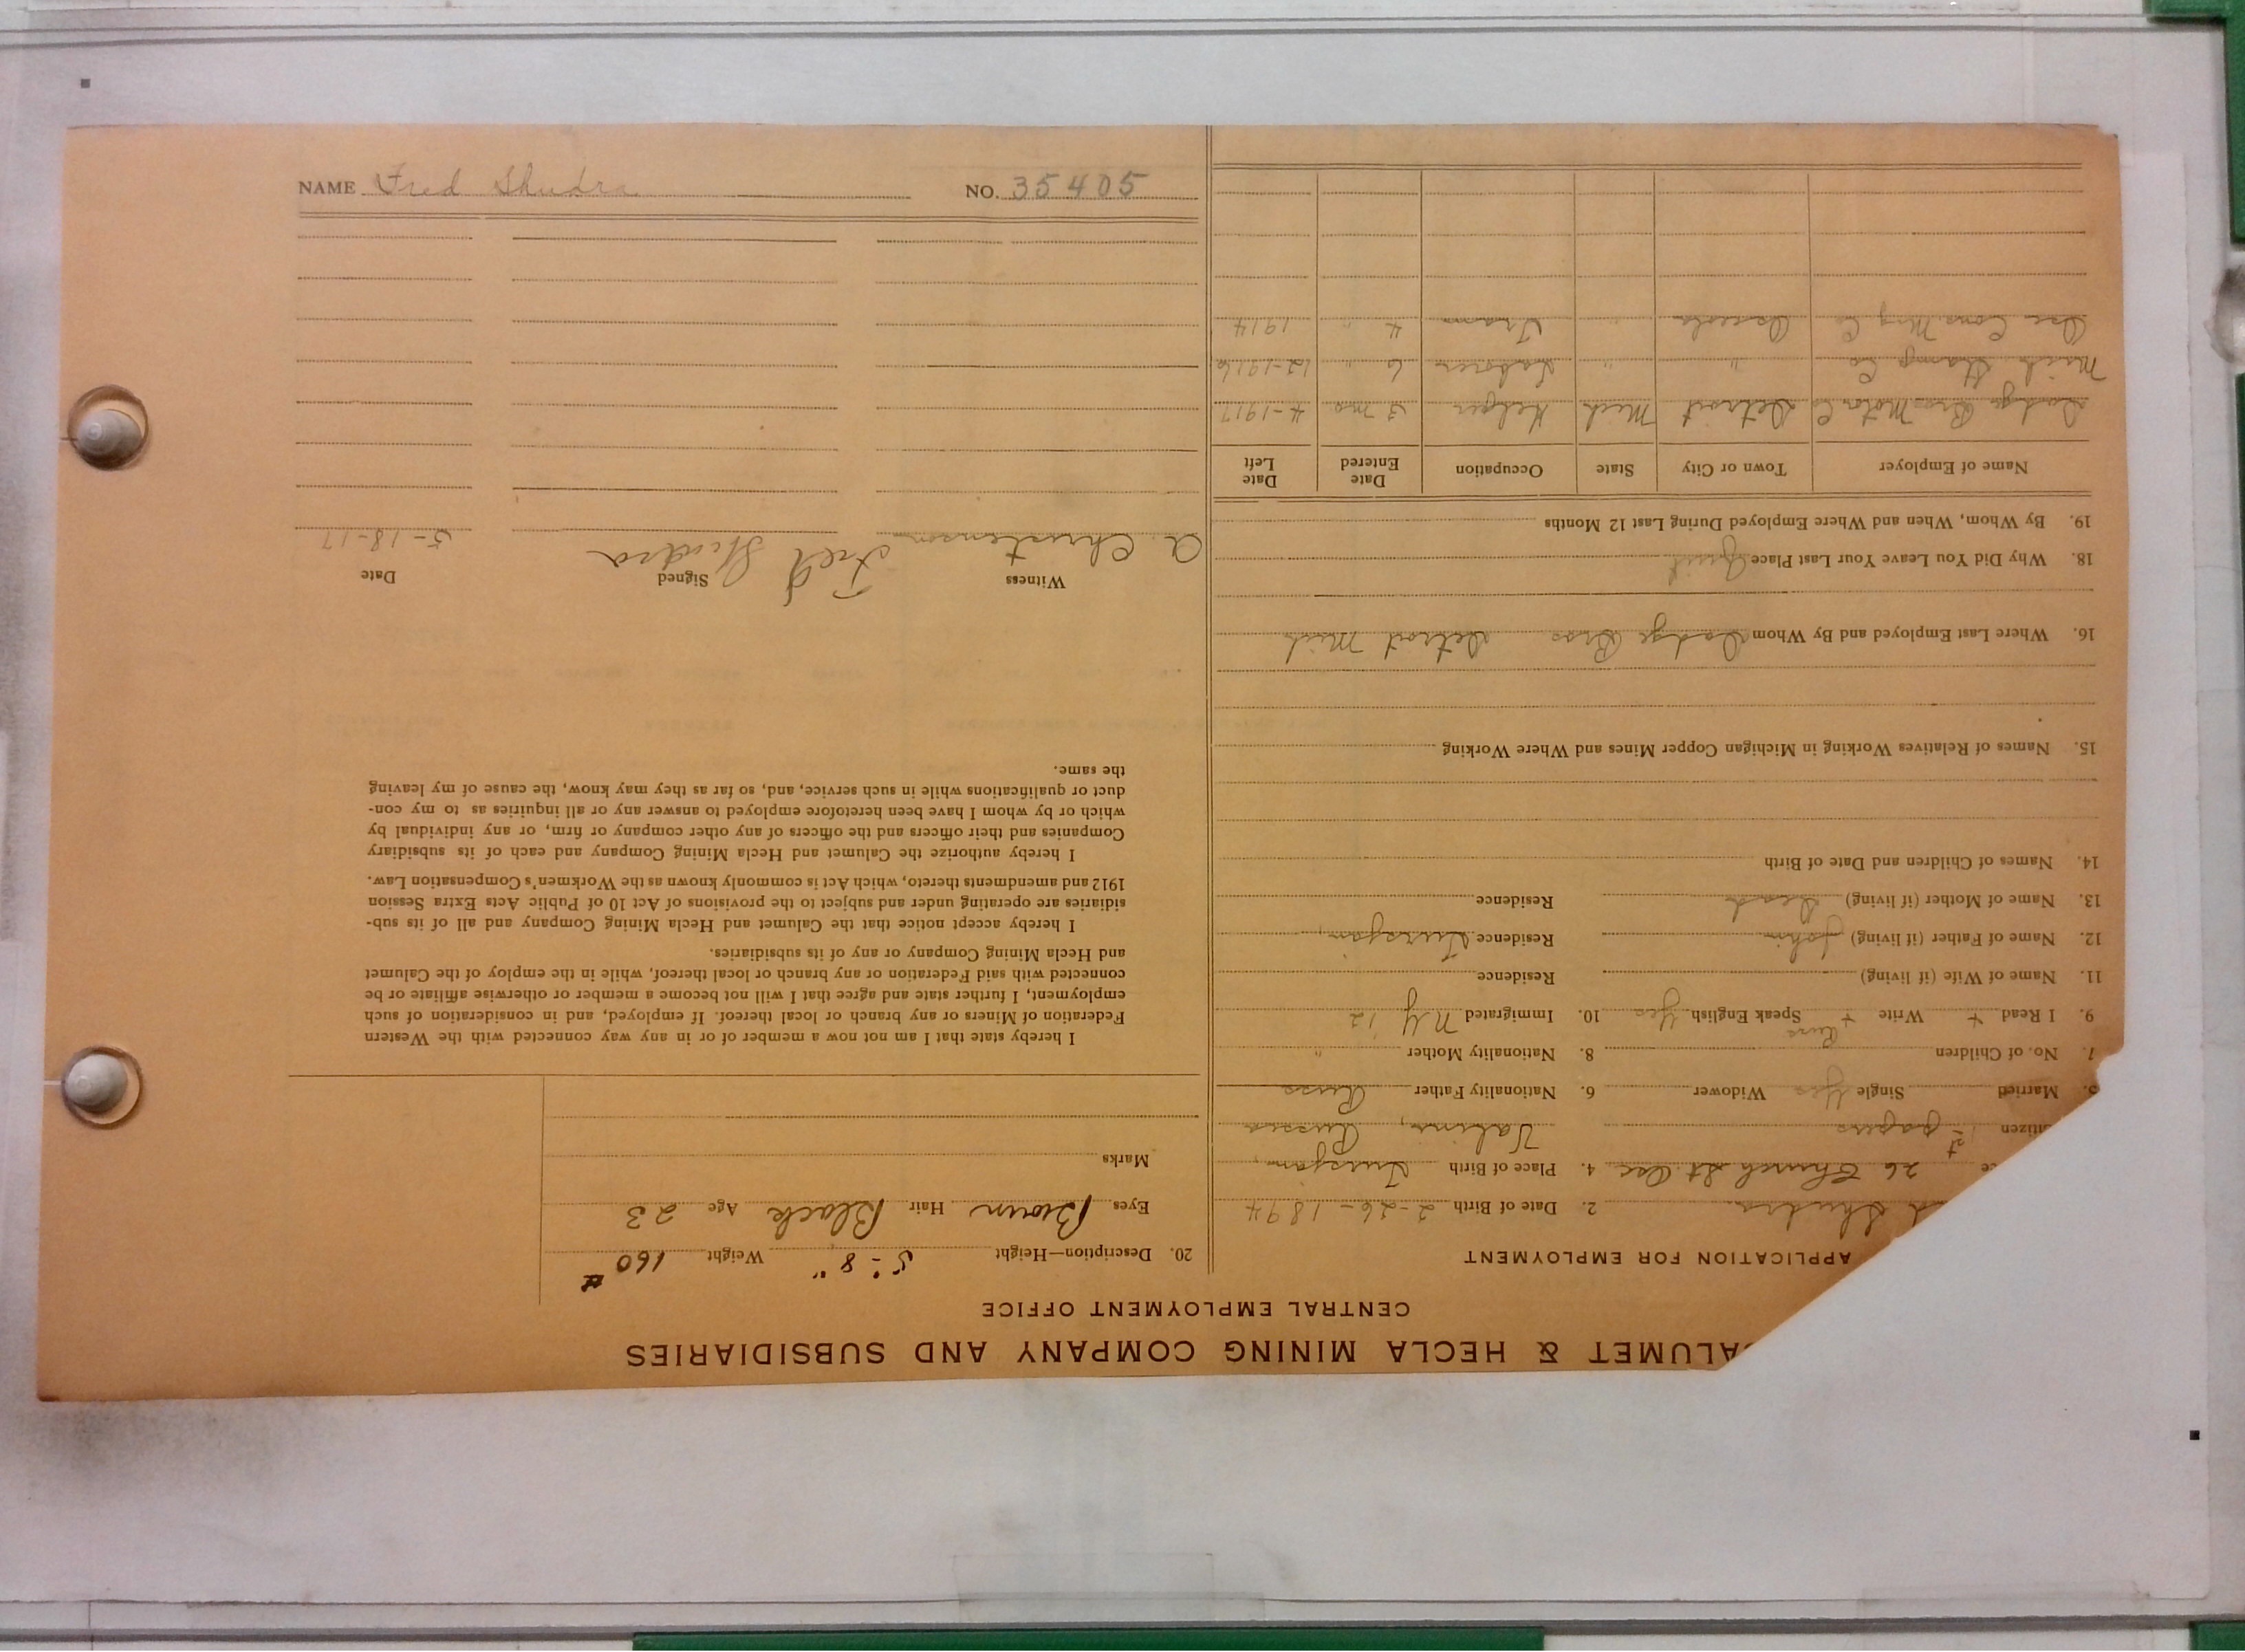 ALUMET & HECLA MINING COMPANY AND SUBSIDIARIES
CENTRAL EMPLOYMENT OFFICE
APPLICATION FOR EMPLOYMENT
d Shudra 2. Date of Birth 2-26-1894
ce 26 Church St Osc 4. Place of Birth
itizen 1st papers Russia
5. Married Single Yes Widower 6. Nationality Father Russ
7. No. of Children 8. Nationality Mother "
Russ
9. I Read + Write + Speak English Yes 10. Immigrated N Y 12
11. Name of Wife (if living) Residence
12. Name of Father (if living) John Residence
13. Name of Mother (if living) Dead Residence
14. Names of Children and Date of Birth
15. Names of Relatives Working in Michigan Copper Mines and Where Working
16. Where Last Employed and By Whom Dodge Bros Detroit Mich
18. Why Did You Leave Your Last Place Quit
19. By Whom, When and Where Employed During Last 12 Months
Name of Employer Town or City State Occupation Date Entered Date Left
Dodge Bros Motor Co Detroit Mich Helper 3 mo 4-1917
Mich Stamp Co " " Laborer 6 " 12-1916
Osc Cons Mng Co Osceola " Tram 4 " 1914
20. Description—Height 5'-8" Weight 160 #
Eyes Brown Hair Black Age 23
Marks
I hereby state that I am not now a member of or in any way connected with the Western
Federation of Miners or any branch or local thereof. If employed, and in consideration of such
employment, I further state and agree that I will not become a member or otherwise affiliate or be
connected with said Federation or any branch or local thereof, while in the employ of the Calumet
and Hecla Mining Company or any of its subsidiaries.
I hereby accept notice that the Calumet and Hecla Mining Company and all of its sub-
sidiaries are operating under and subject to the provisions of Act 10 of Public Acts Extra Session
1912 and amendments thereto, which Act is commonly known as the Workmen's Compensation Law.
I hereby authorize the Calumet and Hecla Mining Company and each of its subsidiary
Companies and their officers and the officers of any other company or firm, or any individual by
which or by whom I have been heretofore employed to answer any or all inquiries as to my con-
duct or qualifications while in such service, and, so far as they may know, the cause of my leaving
the same.
Witness Signed Date
A. Christenson Fred Shudra 5-18-17
NAME Fred Shudra NO. 35405